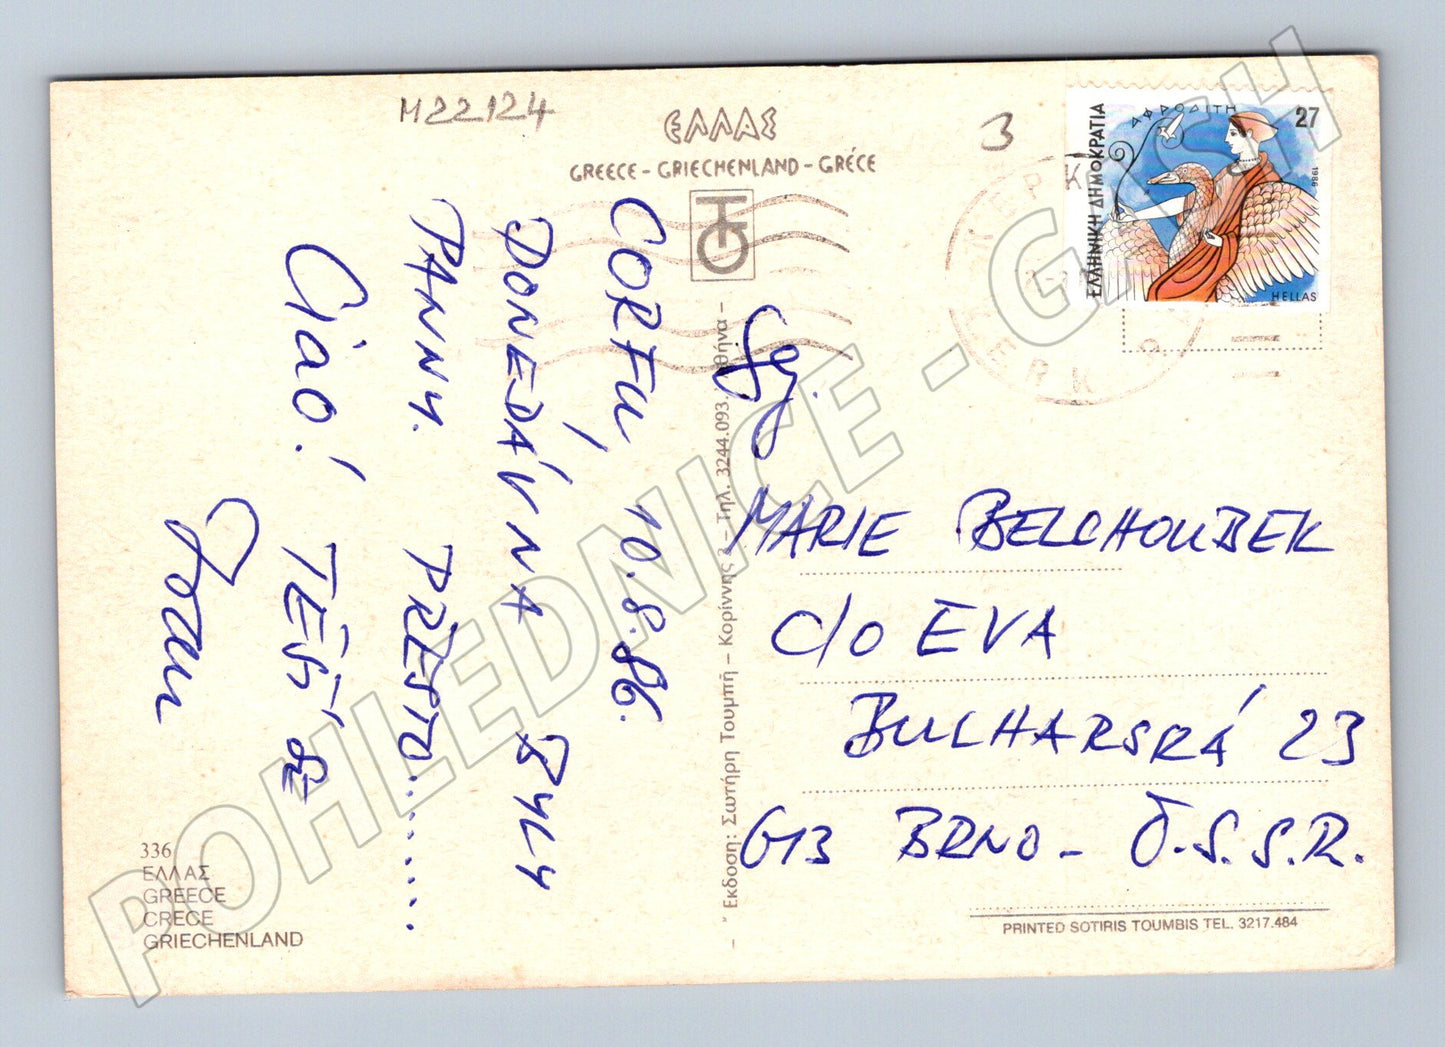 M22124
ΕΛΛΑΣ
GREECE - GRIECHENLAND - GRÉCE
3
ΕΛΛΗΝΙΚΗ ΔΗΜΟΚΡΑΤΙΑ
ΑΦΡΟΔΙΤΗ
27
1986
HELLAS
CORFU, 10.8.86.
DONEDÁVNA BYLY
PANNY. PŘESTO..........
Ciao! TĚŠÍ SE
MARIE BELCHOUBEK
c/o EVA
BULHARSKÁ 23
613 BRNO - Č.S.S.R.
Εκδοση: Σωτήρη Τουμπή - Κορίννης 3 - Τηλ. 3244.093. Αθήνα -
336
ΕΛΛΑΣ
GREECE
CRECE
GRIECHENLAND
PRINTED SOTIRIS TOUMBIS TEL. 3217.484
POHLEDNICE - GISH